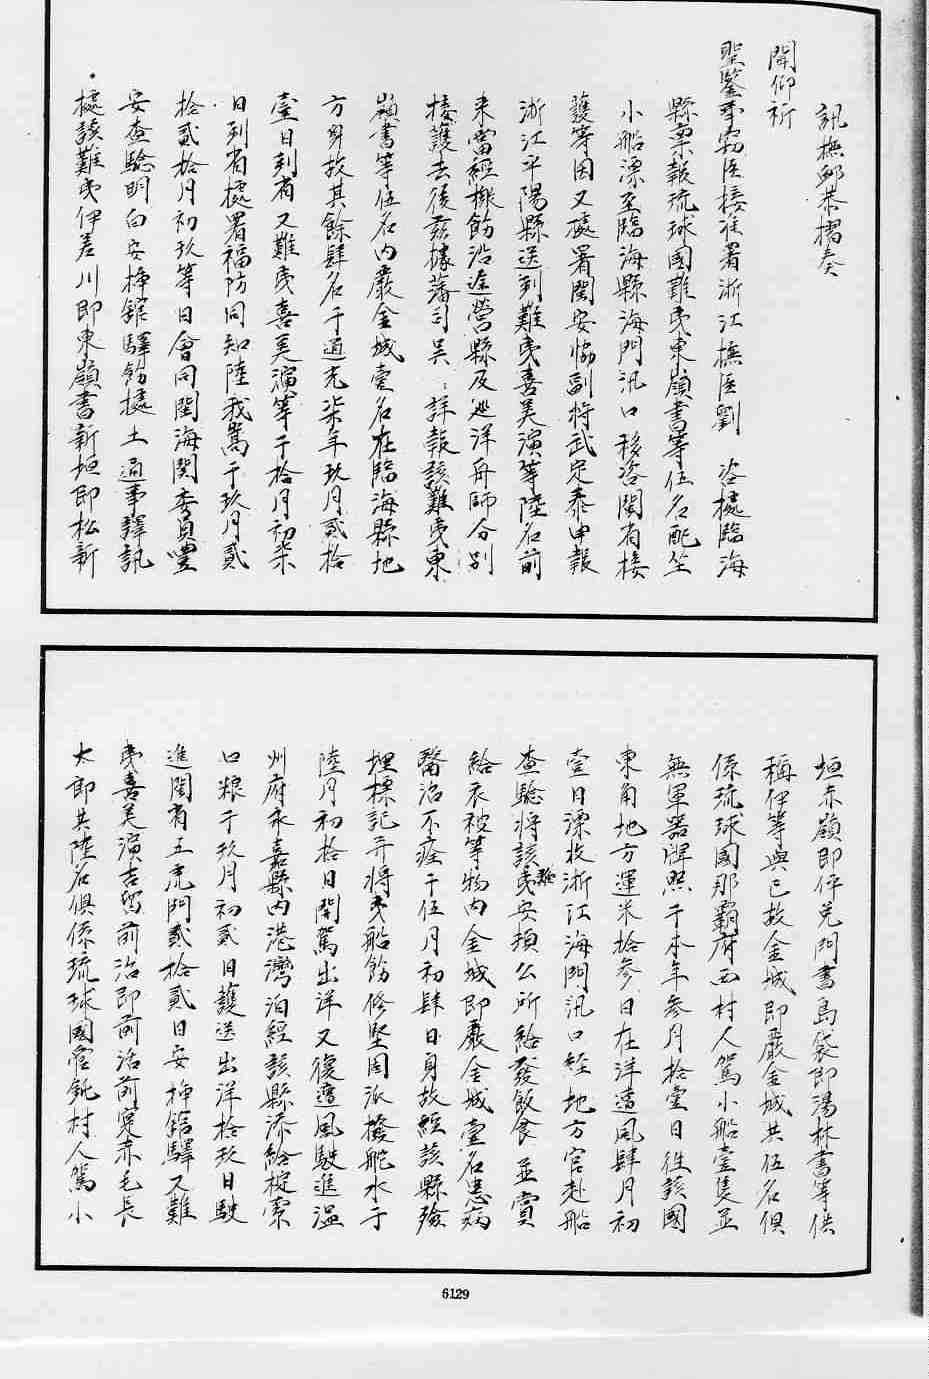 訊撫邺恭摺奏
聞仰祈
聖鑒事窃臣接准署浙江撫臣劉 咨據臨海
縣禀報琉球國難夷東嶺書等伍名配坐
小船漂至臨海縣海門汛口移咨閩省接
護等因又據署閩安協副將武定泰申報
浙江平陽縣送到難夷喜美演等陸名前
来當經檄飭沿途營縣及巡洋舟師分别
接護去後兹據藩司吳 詳報該難夷東
嶺書等伍名内嚴金城壹名在臨海縣地
方身故其餘肆名于道光柒年玖月貳拾
壹日到省又難夷喜美演等于拾月初柒
日到省據署福防同知陸我嵩于玖月貳
拾貳拾月初玖等日會同閩海関委員豐
安查驗明白安揷舘驛飭據土通事譯訊
據該難夷伊差川即東嶺書新垣即松新
垣赤嶺即伻兑門書島袋即湯林書等供
稱伊等與已故金城即嚴金城共伍名俱
係琉球國那霸府西村人駕小船壹隻並
無軍器牌照于本年参月拾壹日徃該國
東角地方運米拾参日在洋遭風肆月初
壹日漂收浙江海門汛口經地方官赴船
查驗將該難夷安頓公所給發飯食並賞
給衣被等物内金城即嚴金城壹名患病
醫治不痊于伍月初肆日身故經該縣殮
埋標記并將夷船飭修堅固派撥舵水于
陸月初拾日開駕出洋又復遭風駛進温
州府永嘉縣内港灣泊經該縣添給椗索
口粮于玖月初貳日護送出洋拾玖日駛
進閩省五虎門貳拾貳日安揷舘驛又難
夷喜美演吉留前治即前治前寔赤毛長
太郎共陸名俱係琉球國宫鈍村人駕小
6129